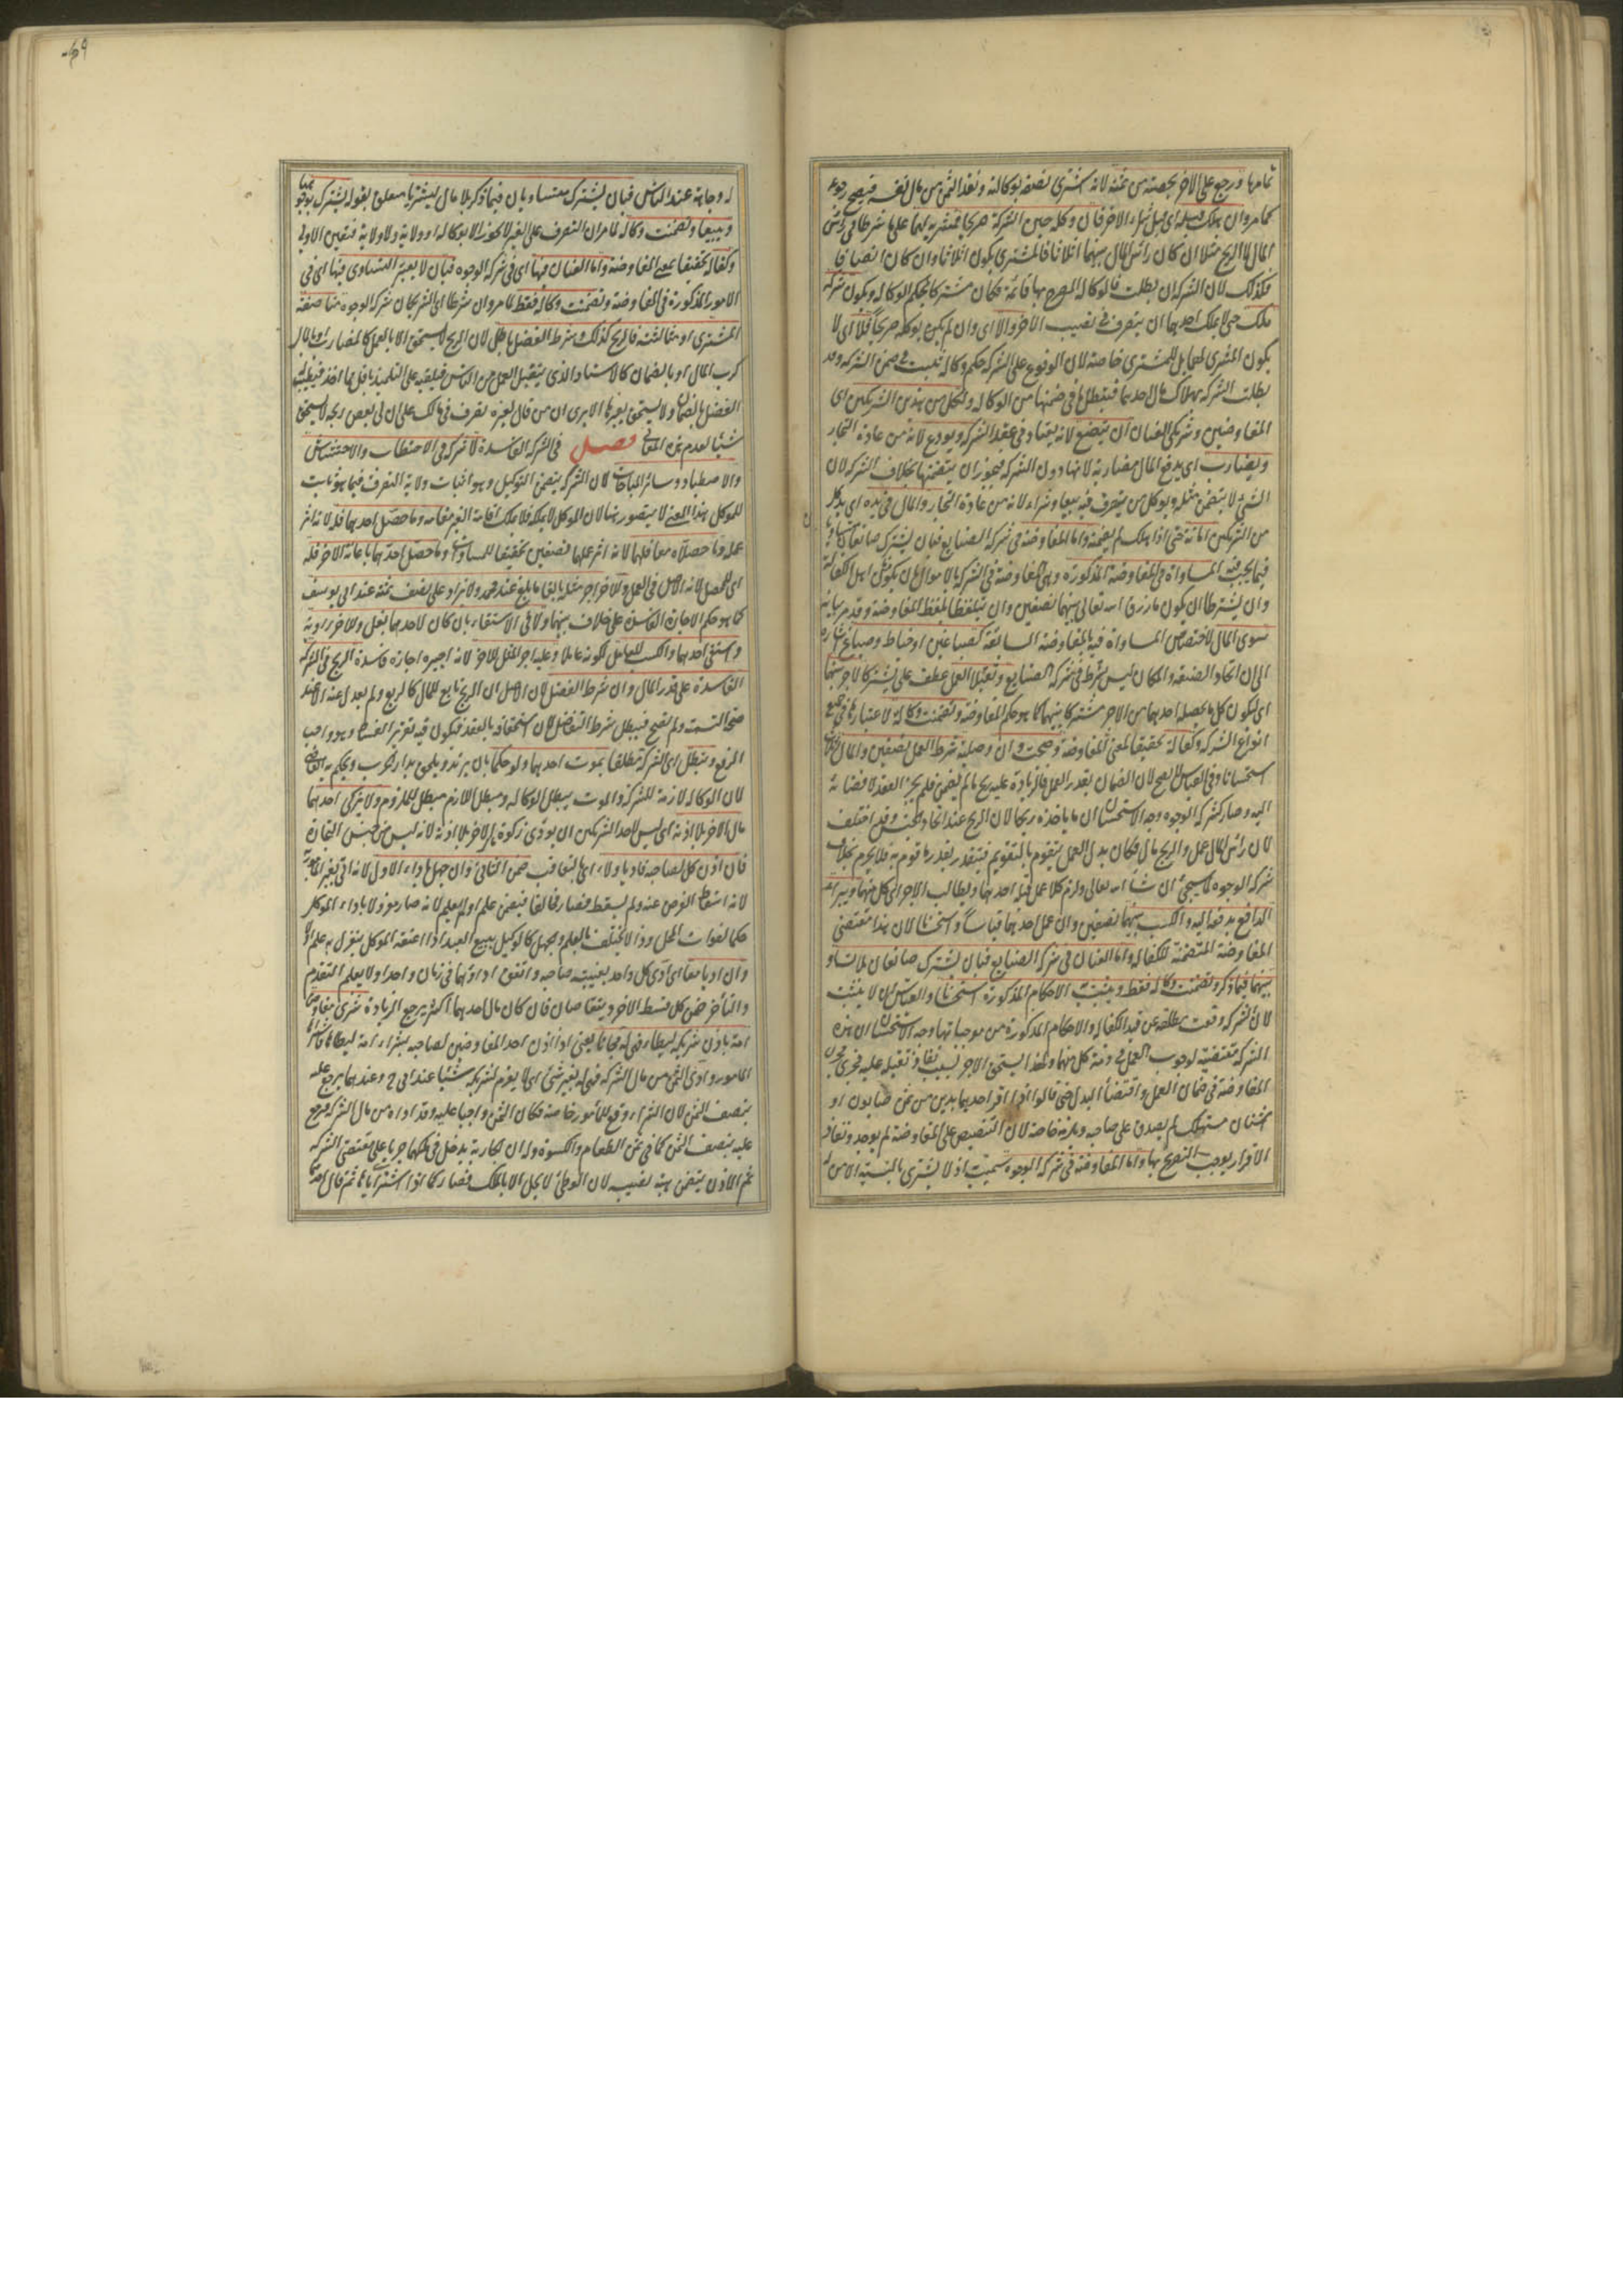 تمامها ورجع على الاخر بحصته من ثمنه لانه اشترى نصفه بوكالته ونقد الثمن من مال نفسه فيصح رجوعه
كما مر وان هلك قبله اى قبل شراء الاخر فان وكله حين الشركة صريحا فمشريه لهما على ما شرطا فى رأس
المال لا الربح مثلا ان كان رأس المال بينهما اثلاثا فالمشترى يكون اثلاثا وان كان انصافا
فكذلك لان الشركة ان بطلت فالوكالة المصرح بها قائمة فكان مشتركا بحكم الوكالة ويكون شركة
ملك حتى لا يملك احدهما ان يتصرف فى نصيب الاخر والا اى وان لم يكن بوكله صريحا فلا اى لا
يكون المشترى لهما بل للمشترى خاصة لان الوقوع على الشركة حكم وكالة تثبت فى ضمن الشركة وقد
بطلت الشركة بهلاك مال احدهما فيبطل ما فى ضمنها من الوكالة ولكل من هذين الشريكين اى
المفاوضين وشريكى العنان ان يبضع لانه يعتاد فى عقد الشركة ويودع لانه من عادة التجار
ويضارب اى يدفع المال مضاربة لانها دون الشركة فيجوز ان يتضمنها بخلاف الشركة لان
الشئ لا يتضمن مثله ويوكل من يتصرف فيه بيعا وشراء لانه من عادة التجار والمال فى يده اى يد كل
من الشريكين امانة حتى اذا هلك لم يضمنه واما المفاوضة فى شركة الصنايع فبان يشترك صانعان
فيما يجب فيه المساواة فى المفاوضة المذكورة وهى المفاوضة فى الشركة بالاموال بان يكونا من اهل الكفالة
وان يشترطا ان يكون ما رزق الله تعالى بينهما نصفين وان يتلفظا بلفظ المفاوضة وقد مر بيانه
سوى المال لاختصاص المساواة فيه بالمفاوضة السابقة كصباغين او خياط وصباغ اشارة
الى ان اتحاد الصنعة والمكان ليس بشرط فى شركة الصنايع وتقبلا العمل عطف على يشتركا لاجر بينهما
اى ليكون كل ما يحصله احدهما من الاجر مشتركا بينهما كما هو حكم المفاوضة وتضمنت وكالة لاعتبارها فى جميع
انواع الشركة وكفالة تحقيقا لمعنى المفاوضة وصحت وان وصلية شرط العمل نصفين والمال اثلاثا
استحسانا وفى القياس لا يصح لان الضمان بقدر العمل فالزيادة عليه ربح ما لم يضمن فلم يجز العقد لافضائه
اليه وصار كشركة الوجوه وجه الاستحسان ان ما ياخذه ربحا لان الربح عند اتحاد الجنس وقد اختلف
لان رأس المال عمل والربح مال فكان بدل العمل يتقوم بالتقويم فيتقدر بقدر ما قوم به فلا يحرم بخلاف
شركة الوجوه لما سيجئ ان شاء الله تعالى ولزم كلا عمل قبله احدهما ويطالب الاجر اى كل منهما ويبرأ
الدافع بدفعه اليه والكسب بينهما نصفين وان عمل احدهما قياسا واستحسانا لان هذا مقتضى
المفاوضة المتضمنة للكفالة واما العنان فى شركة الصنايع فبان يشترك صانعان بلا تساو
بينهما فيما ذكر وتضمنت وكالة فقط ويثبت الاحكام المذكورة استحسانا والقياس ان لا يثبت
لان الشركة وقعت مطلقة عن قيد الكفالة والاحكام المذكورة من موجباتها وجه الاستحسان ان هذه
الشركة مقتضية لوجوب العمل فى ذمة كل منهما ولهذا يستحق الاجر بسبب نفاذ تقبله عليه فجرى مجرى
المفاوضة فى ضمان العمل واقتضاء البدل حتى قالوا اذا اقر احدهما بدين من ثمن صابون او
اشنان مستهلك لم يصدق على صاحبه ويلزمه خاصة لان التنصيص على المفاوضة لم يوجد ونفاذ
الاقرار يوجب التصريح بها واما المفاوضة فى شركة الوجوه سميت اذ لا يشترى بالنسيئة الا من
له وجاهة عند الناس فبان يشترك متساويان فيما ذكر بلا مال ليشتريا متعلق بقوله يشترك بوجوههما
ويبيعا وتضمنت وكالة لما مر ان التصرف على الغير لا يجوز الا بوكالة او ولاية ولا ولاية فتعين الاولى
وكفالة تحقيقا لمعنى المفاوضة واما العنان فيها اى فى شركة الوجوه فبان لا يعتبر التساوى فيها اى فى
الامور المذكورة فى المفاوضة وتضمنت وكالة فقط لما مر وان شرطا اى الشريكان شركة الوجوه مناصفة
المشترى او مثالثته فالربح كذلك وشرط الفضل باطل لان الربح لا يستحق الا بالعمل كالمضارب او بالمال
كرب المال او بالضمان كالاستاد الذى يتقبل العمل من الناس فيلقيه على التلميذ باقل مما اخذ فيطيب له
الفضل بالضمان ولا يستحق بغيرها الا يرى ان من قال لغيره تصرف فى مالك على ان لى بعض ربحه لا يستحق
شيئا لعدم هذه المعانى فصل فى الشركة الفاسدة لا شركة فى الاحتطاب والاحتشاش
والاصطياد وسائر المباحات لان الشركة يتضمن التوكيل وهو اثبات ولاية التصرف فيما هو ثابت
للموكل بهذا المعنى لا يتصور هنا لان الموكل لا يملكه فلا يملك اقامة الغير مقامه وما حصل احدهما فله لانه اثر
عمله وما حصلاه معا فلهما لانه اثر عملهما نصفين تحقيقا للمساواة وما حصل احدهما باعانة الاخر فله
اى للمحصل لانه الاصل فى العمل وللاخر اجر مثله بالغا ما بلغ عند محمد ولا يزاد على نصف ثمنه عند ابى يوسف
كما هو حكم الاجارة الفاسدة على خلاف بينهما ولا فى الاستقاء بان كان لاحدهما بغل وللاخر راوية
واستقى احدهما والكسب للعامل لكونه عاملا وعليه اجر المثل للاخر لانه اجيره اجارة فاسدة الربح فى الشركة
الفاسدة على قدر المال وان شرط الفضل لان الاصل ان الربح تابع للمال كالريع ولم يعدل عنه الا عند
صحة التسمية ولم تصح فيبطل شرط التفاضل لان استحقاقه بالعقد فيكون فيه تقرير الفساد وهو واجب
الرفع وتبطل اى الشركة مطلقا بموت احدهما ولو حكما بان يرتد ويلحق بدار الحرب ويحكم به القاضى
لان الوكالة لازمة للشركة والموت يبطل الوكالة ومبطل اللازم مبطل للملزوم ولا يزكى احدهما
مال الاخر بلا اذنه اى ليس لاحد الشريكين ان يؤدى زكوة مال الاخر بلا اذنه لانه ليس من جنس التجارة
فان اذن كل لصاحبه فاديا ولاء اى بالتعاقب ضمن الثانى وان جهل باداء الاول لانه اتى بغير المأمور به
لانه اسقاط الفرض عنه ولم يسقط فصار مخالفا فيضمن علم او لم يعلم لانه صار معزولا باداء الموكل
حكما لفوات المحل وذا لا يختلف بالعلم والجهل كالوكيل ببيع العبد اذا اعتقه الموكل ينعزل به علم او لا
وان اديا معا اى ادى كل واحد بغيبة صاحبه واتفق اداؤهما فى زمان واحد او لا يعلم التقدم
والتأخر ضمن كل قسط الاخر ويتقاصان فان كان مال احدهما اكثر يرجع الزيادة شرى مفاوض
امة باذن شريكه ليطأ فهى له مجانا يعنى اذا اذن احد المفاوضين لصاحبه بشراء امة ليطأها فاشتراها
المأمور وادى الثمن من مال الشركة فهى له بغير شئ اى لا يغرم لشريكه شيئا عند ابى ح وعندهما يرجع عليه
بنصف الثمن لان الشراء وقع للمأمور خاصة فكان الثمن واجبا عليه وقد اداه من مال الشركة فيرجع
عليه بنصف الثمن كما فى ثمن الطعام والكسوة وله ان الجارية يدخل فى ملكهما جريا على مقتضى الشركة
ثم الاذن يتضمن هبة نصيبه لان الوطئ لا يحل الا بالملك فصار كما اذا اشترياها ثم قال احدهما